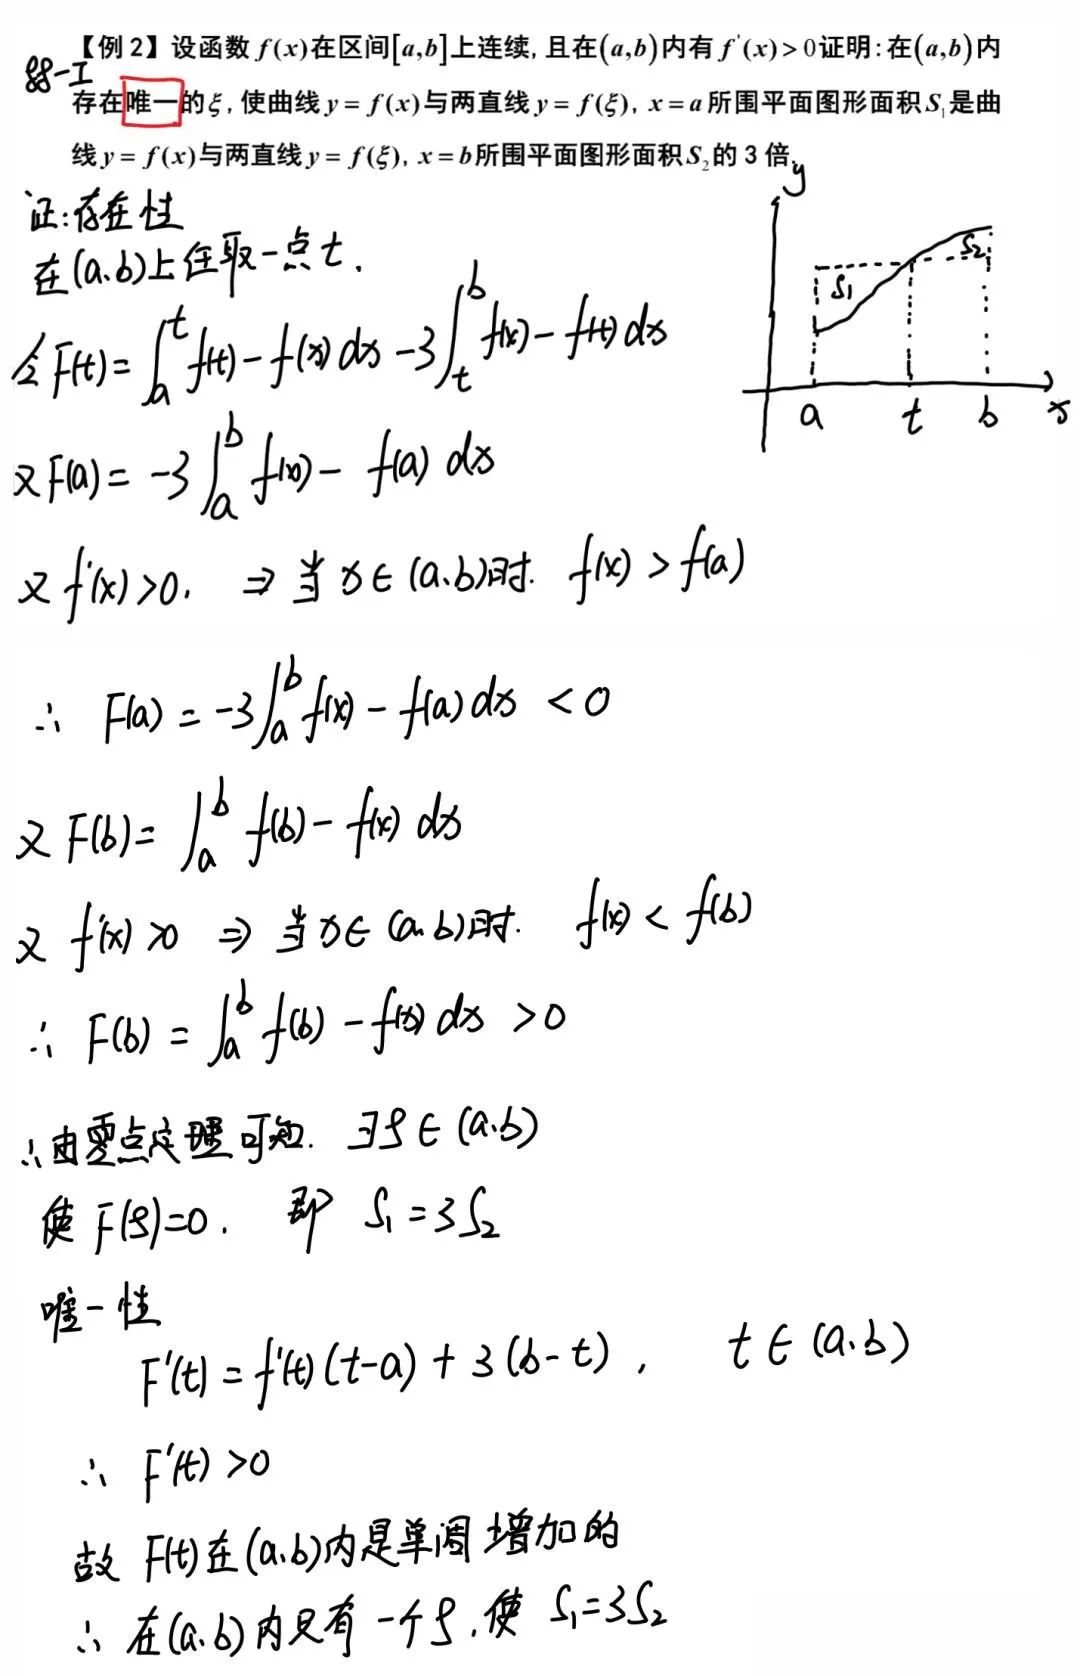 【例2】设函数 f(x)在区间[a,b]上连续,且在(a,b)内有 f'(x)>0证明:在(a,b)内
88-I
存在唯一的ξ,使曲线 y=f(x)与两直线 y=f(ξ), x=a 所围平面图形面积S₁是曲
线 y=f(x)与两直线 y=f(ξ), x=b所围平面图形面积S₂的 3 倍.
证:存在性
在(a.b)上任取一点t.
y
S₁
S₂
a t b x
令F(t)=∫ₐᵗ f(t)-f(x) dx -3∫ₜᵇ f(x)-f(t) dx
又F(a)= -3∫ₐᵇ f(x)- f(a) dx
又 f'(x)>0. ⇒ 当 x∈(a.b)时. f(x) > f(a)
∴ F(a) = -3∫ₐᵇ f(x)- f(a) dx < 0
又 F(b)= ∫ₐᵇ f(b)- f(x) dx
又 f'(x)>0 ⇒ 当x∈(a.b)时. f(x) < f(b)
∴ F(b) = ∫ₐᵇ f(b) -f(x) dx >0
∴由零点定理可知. ∃ξ∈(a.b)
使 F(ξ)=0. 即 S₁=3S₂
唯一性
F'(t)=f'(t)(t-a)+3(b-t), t∈(a.b)
∴ F'(t) >0
故 F(t)在(a.b)内是单调增加的
∴ 在(a.b)内只有一个ξ.使 S₁=3S₂